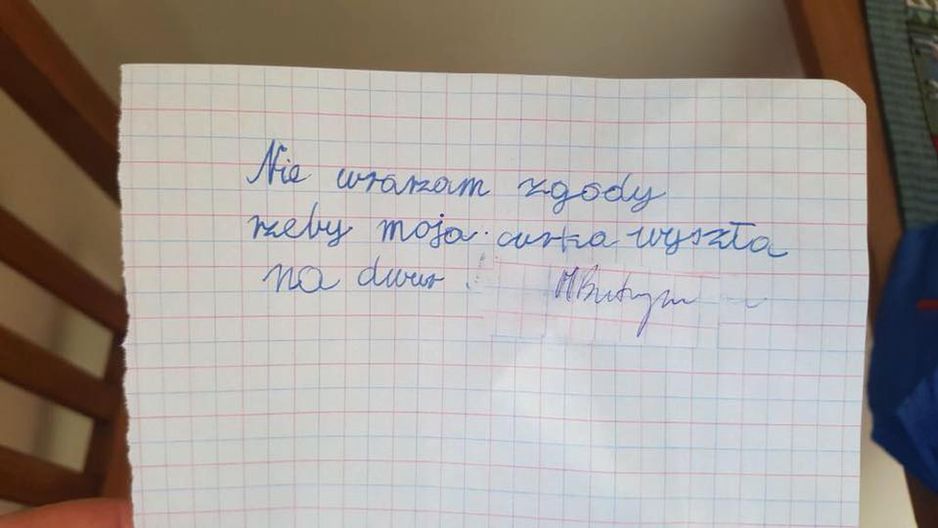 Nie wrarzam zgody
rzeby moja curka wyszła
na dwur.